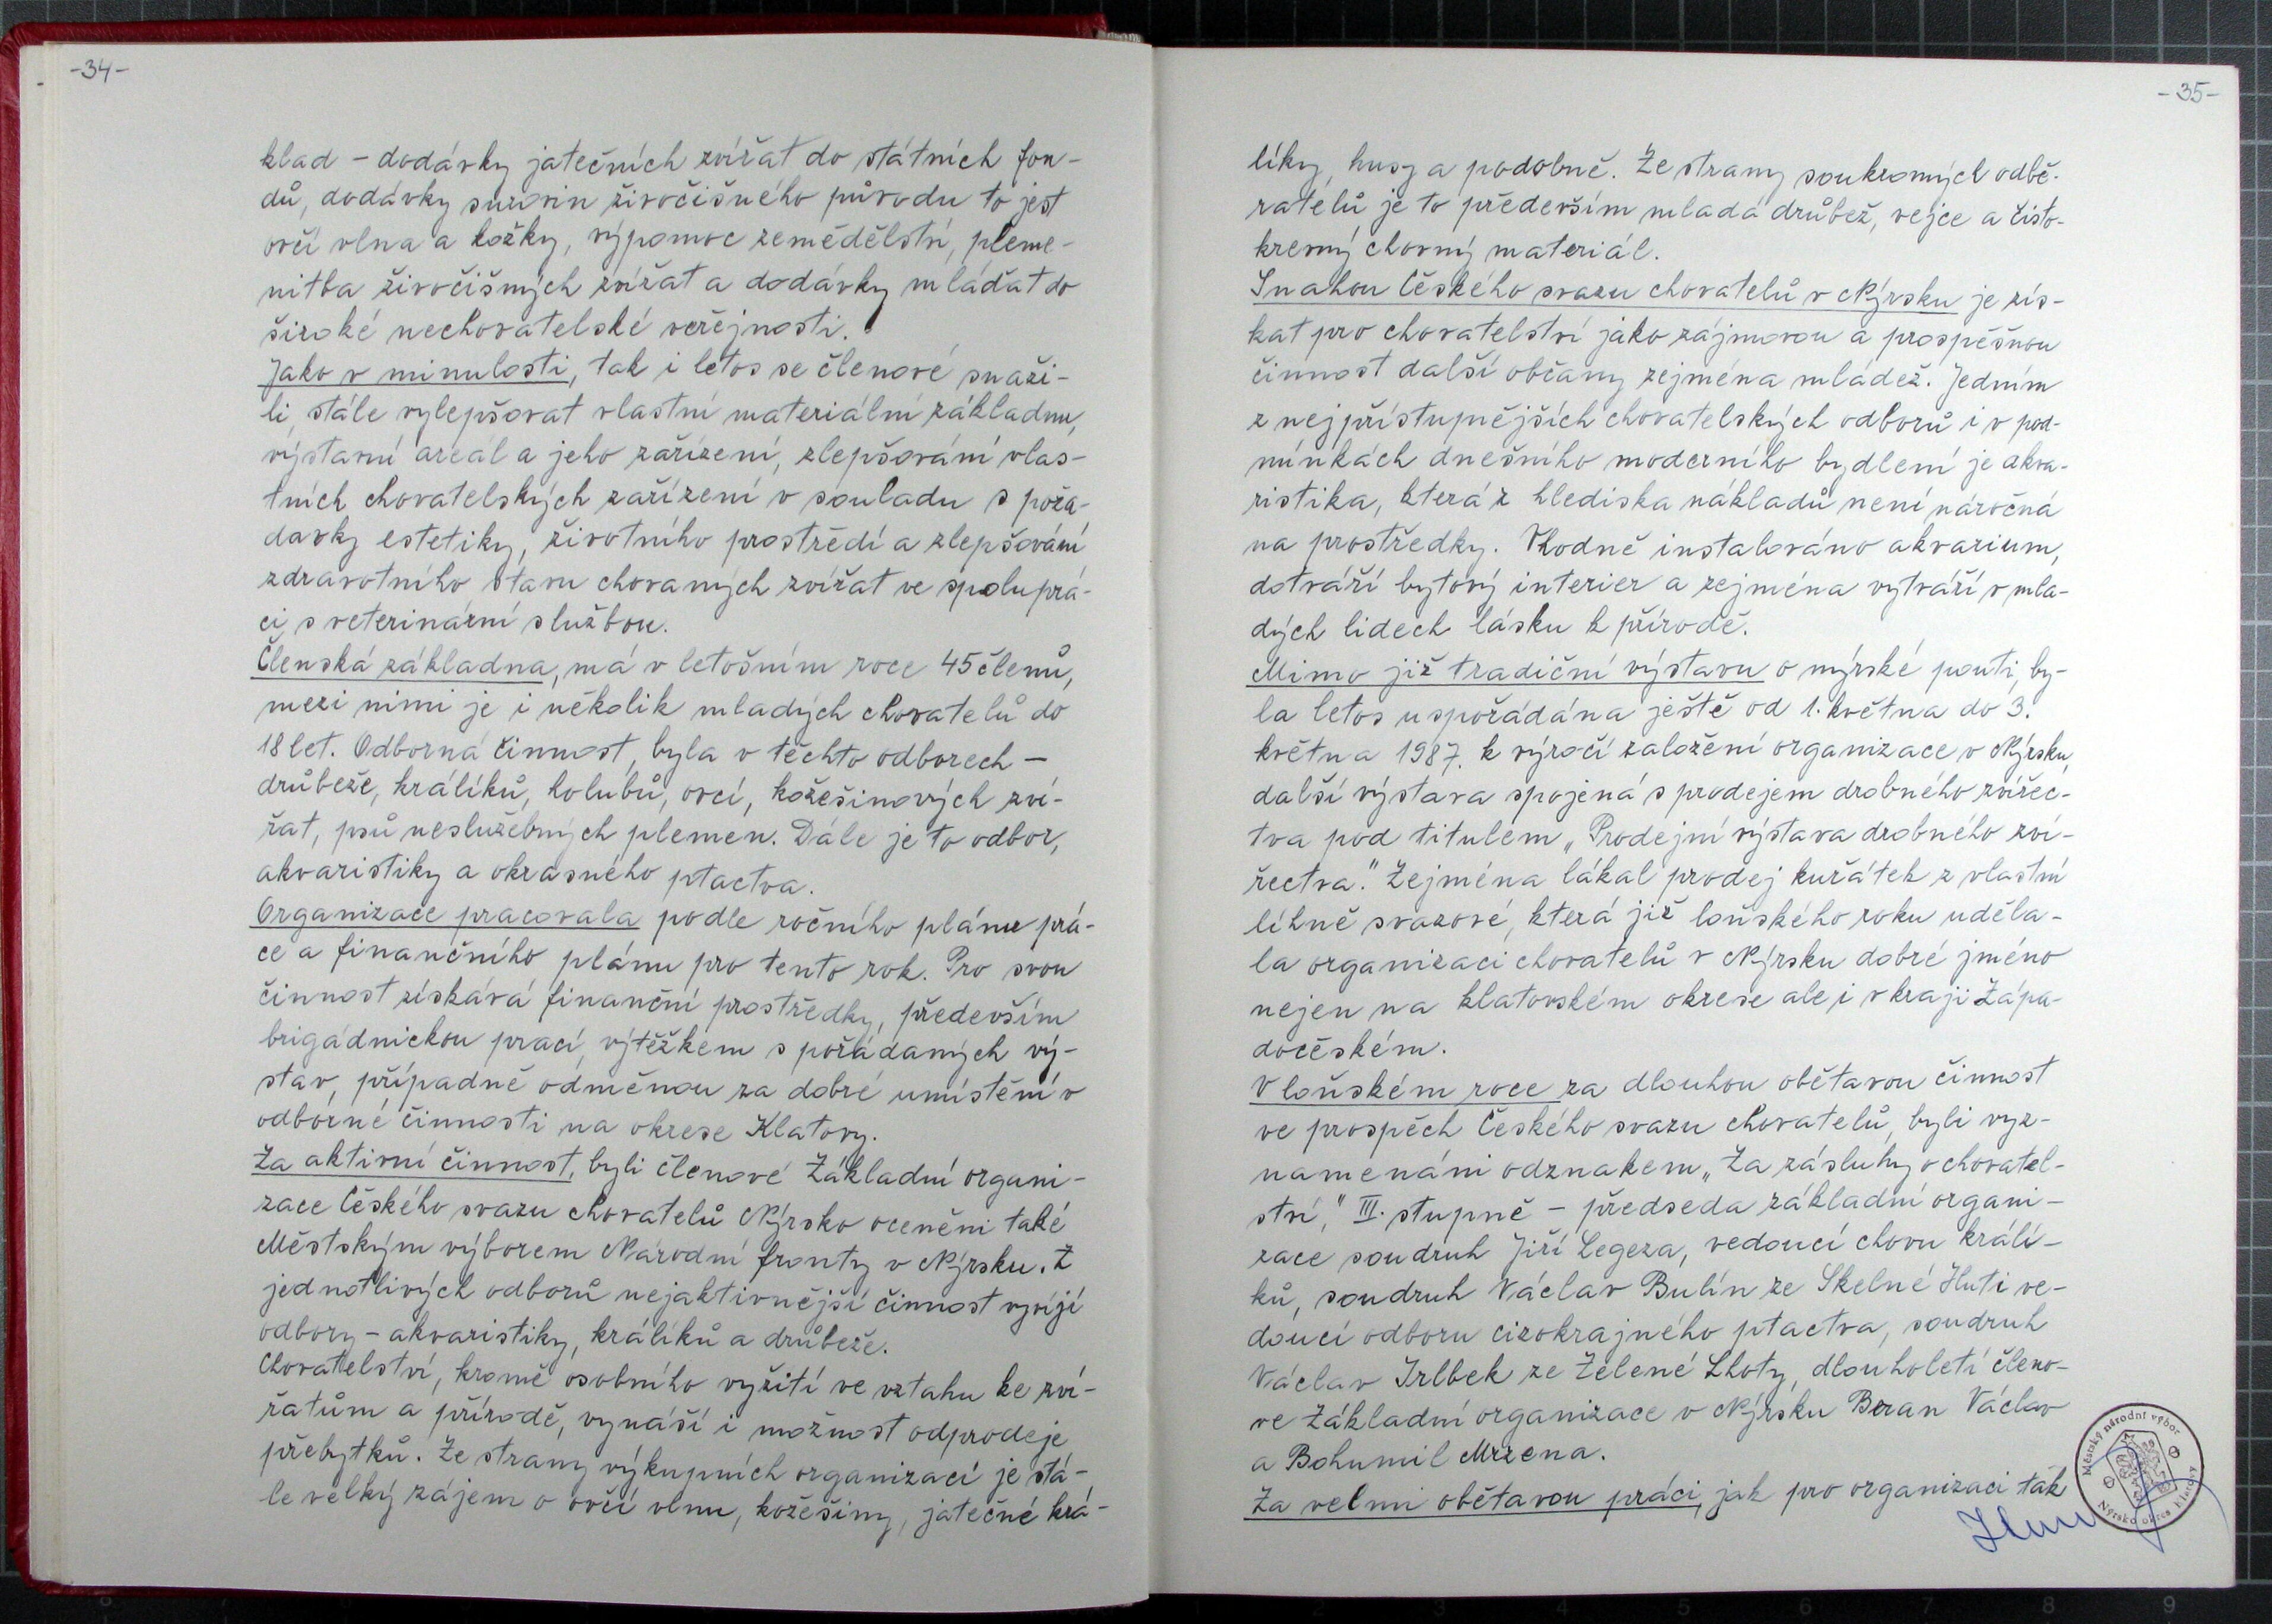 -34-
klad - dodávky jatečních zvířat do státních fon-
dů, dodávky surovin živočišného původu to jest
ovčí vlna a kožky, výpomoc zemědělství, pleme-
nitba živočišných zvířat a dodávky mláďat do
široké nechovatelské veřejnosti.
Jako v minulosti, tak i letos se členové snaži-
li, stále vylepšovat vlastní materiální základnu,
výstavní areál a jeho zařízení, zlepšování vlas-
tních chovatelských zařízení v souladu s poža-
davky estetiky, životního prostředí a zlepšování
zdravotního stavu chovaných zvířat ve spoluprá-
ci s veterinární službou.
Členská základna, má v letošním roce 45 členů,
mezi nimi je i několik mladých chovatelů do
18 let. Odborná činnost, byla v těchto odborech -
drůbeže, králíků, holubů, ovcí, kožešinových zví-
řat, psů neslužebných plemen. Dále je to odbor,
akvaristiky a okrasného ptactva.
Organizace pracovala podle ročního plánu prá-
ce a finančního plánu pro tento rok. Pro svou
činnost získává finanční prostředky, především
brigádnickou prací, výtěžkem s pořádaných vý-
stav, případně odměnou za dobré umístění v
odborné činnosti na okrese Klatovy.
Za aktivní činnost, byli členové Základní organi-
zace Českého svazu chovatelů Nýrsko oceněni také
Městským výborem Národní fronty v Nýrsku. Z
jednotlivých odborů nejaktivnější činnost vyvíjí
odbory - akvaristiky, králíků a drůbeže.
Chovatelství, kromě osobního vyžití ve vztahu ke zví-
řatům a přírodě, vynáší i možnost odprodeje
přebytků. Ze strany výkupních organizací je stá-
le velký zájem o ovčí vlnu, kožešiny, jatečné krá-
-35-
líky, husy a podobně. Ze strany soukromých odbě-
ratelů je to především mladá drůbež, vejce a čisto-
krevný chovný materiál.
Snahou Českého svazu chovatelů v Nýrsku je zís-
kat pro chovatelství jako zájmovou a prospěšnou
činnost další občany zejména mládež. Jedním
z nejpřístupnějších chovatelských odborů i v pod-
mínkách dnešního moderního bydlení je akva-
ristika, která z hlediska nákladů není náročná
na prostředky. Vhodně instalováno akvarium,
dotváří bytový interier a zejména vytváří v mla-
dých lidech lásku k přírodě.
Mimo již tradiční výstavu o nýrské pouti, by-
la letos uspořádána ještě od 1. května do 3.
května 1987. k výročí založení organizace v Nýrsku,
další výstava spojená s prodejem drobného zvířec-
tva pod titulem „Prodejní výstava drobného zví-
řectva." Zejména lákal prodej kuřátek z vlastní
líhně svazové, která již loňského roku uděla-
la organizaci chovatelů v Nýrsku dobré jméno
nejen na klatovském okrese ale i v kraji Zápa-
dočeském.
V loňském roce za dlouhou obětavou činnost
ve prospěch Českého svazu chovatelů, byli vyz-
namenáni odznakem „Za zásluhy o chovatel-
ství," III. stupně - předseda základní organi-
zace soudruh Jiří Legeza, vedoucí chovu králí-
ků, soudruh Václav Bulín ze Skelné Huti ve-
doucí odboru cizokrajného ptactva, soudruh
Václav Irlbek ze Zelené Lhoty, dlouholetí členo-
ve Základní organizace v Nýrsku Beran Václav
a Bohumil Mrzena.
Za velmi obětavou práci, jak pro organizaci tak
Městský národní výbor
Nýrsko okres Klatovy